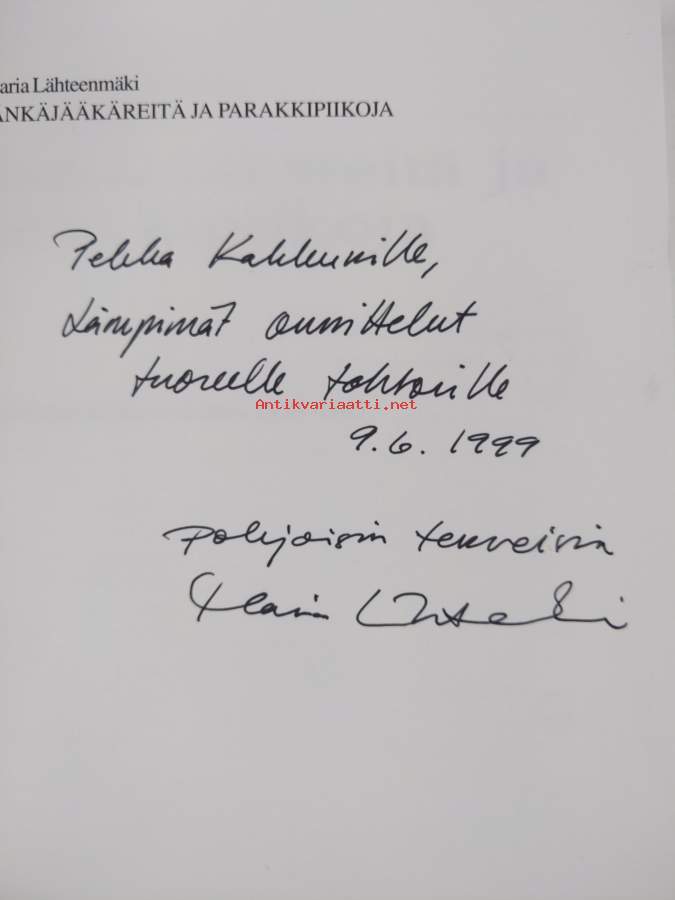 aria Lähteenmäki
ANKÄJÄÄKÄREITÄ JA PARAKKIPIIKOJA
Pekka Kakkurille,
Lämpimät onnittelut
tuoreelle tohtorille
Antikvariaatti.net
9.6. 1999
Pohjoisin terveisin
Maria Lähteenmäki